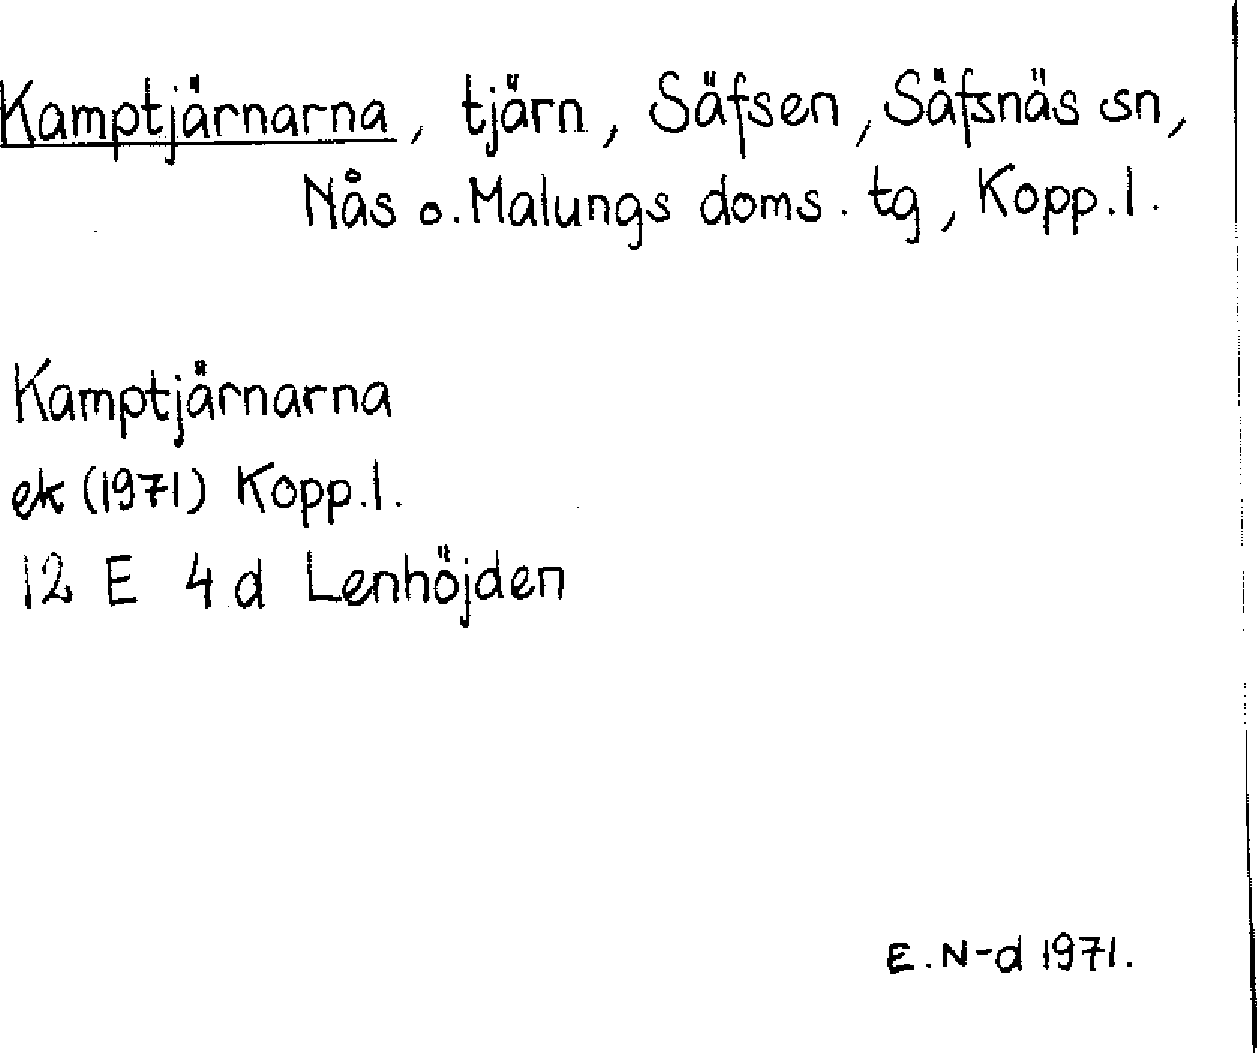 Kamptjärnarna, tjärn, Säfsen, Säfsnäs sn,
Nås o. Malungs doms. tg, Kopp.l.
Kamptjärnarna
ek (1971) Kopp.l.
12 E 4 d Lenhöjden
E. N-d 1971.